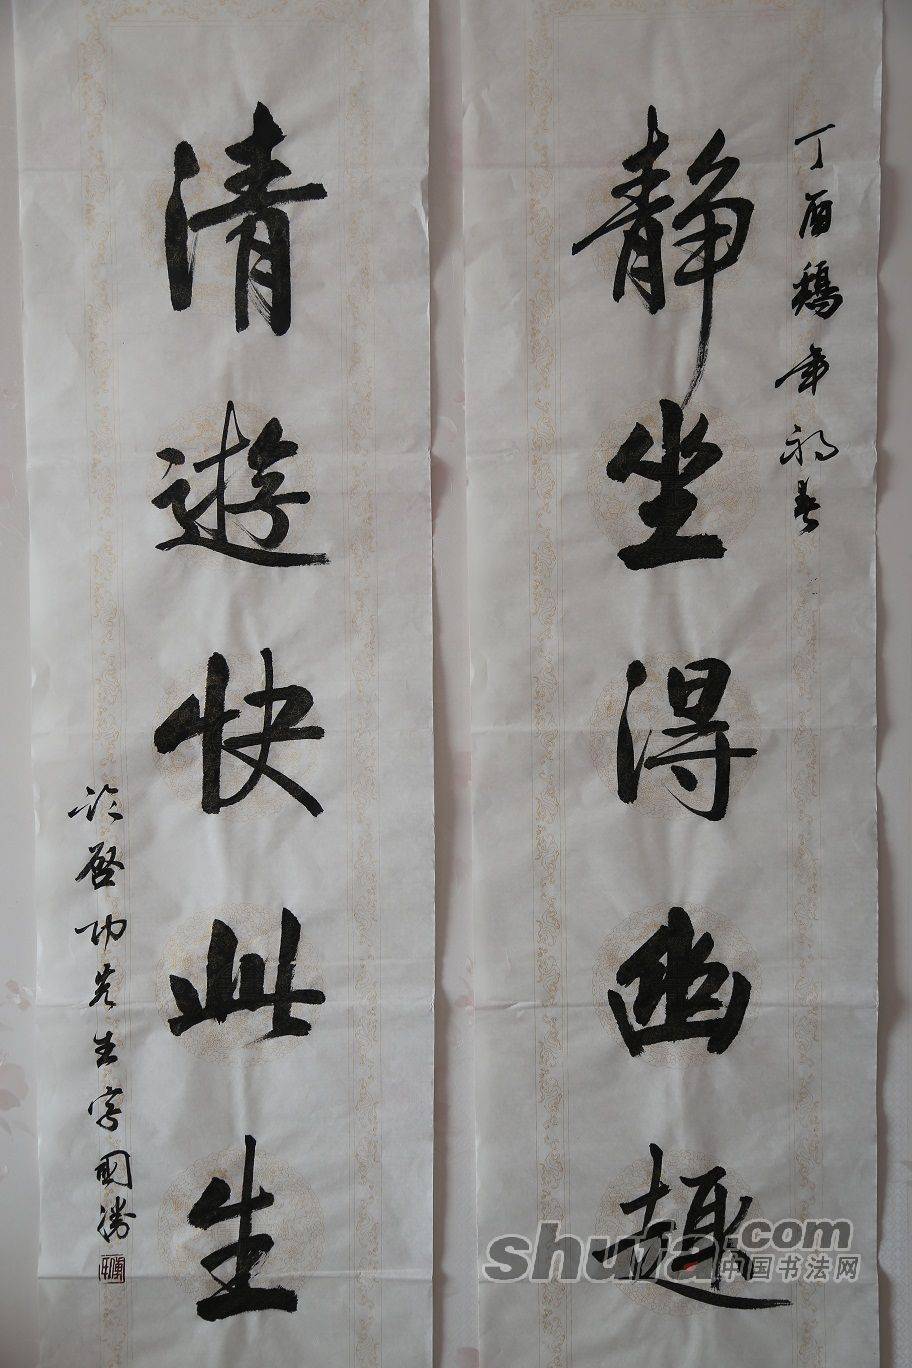 丁酉鸡年初春
静坐得幽趣
清遊快此生
临启功先生字国胜
shufa.com
中国书法网